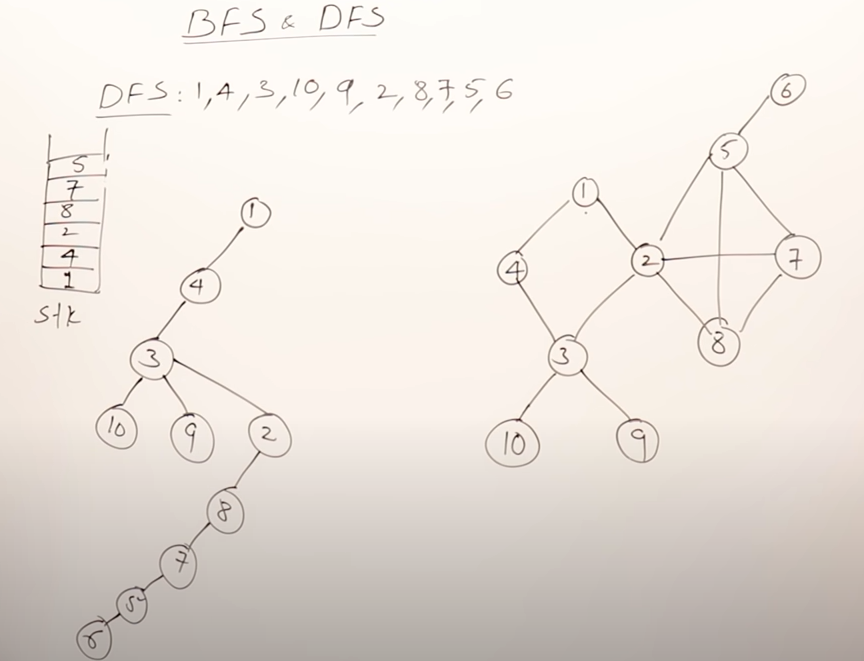 BFS & DFS
DFS: 1,4,3,10,9,2,8,7,5,6
5
7
8
2
4
1
stk
1
4
3
10
9
2
8
7
5
6
5
1
4
2
7
8
3
10
9